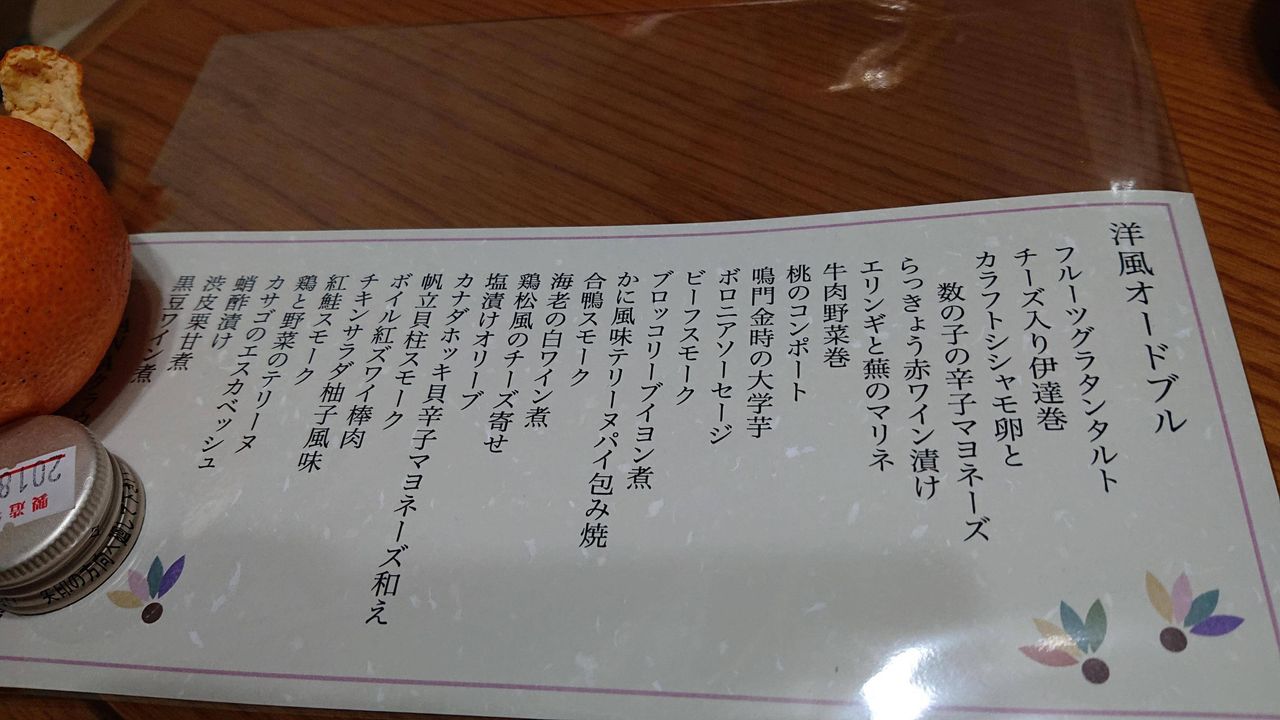 洋風オードブル
フルーツグラタンタルト
チーズ入り伊達巻
カラフトシシャモ卵と
数の子の辛子マヨネーズ
らっきょう赤ワイン漬け
エリンギと蕪のマリネ
牛肉野菜巻
桃のコンポート
鳴門金時の大学芋
ボロニアソーセージ
ビーフスモーク
ブロッコリーブイヨン煮
かに風味テリーヌパイ包み焼
合鴨スモーク
海老の白ワイン煮
鶏松風のチーズ寄せ
塩漬けオリーブ
カナダホッキ貝辛子マヨネーズ和え
帆立貝柱スモーク
ボイル紅ズワイ棒肉
チキンサラダ柚子風味
紅鮭スモーク
鶏と野菜のテリーヌ
カサゴのエスカベッシュ
蛸酢漬け
渋皮栗甘煮
黒豆ワイン煮
2018
製造
矢印の方向